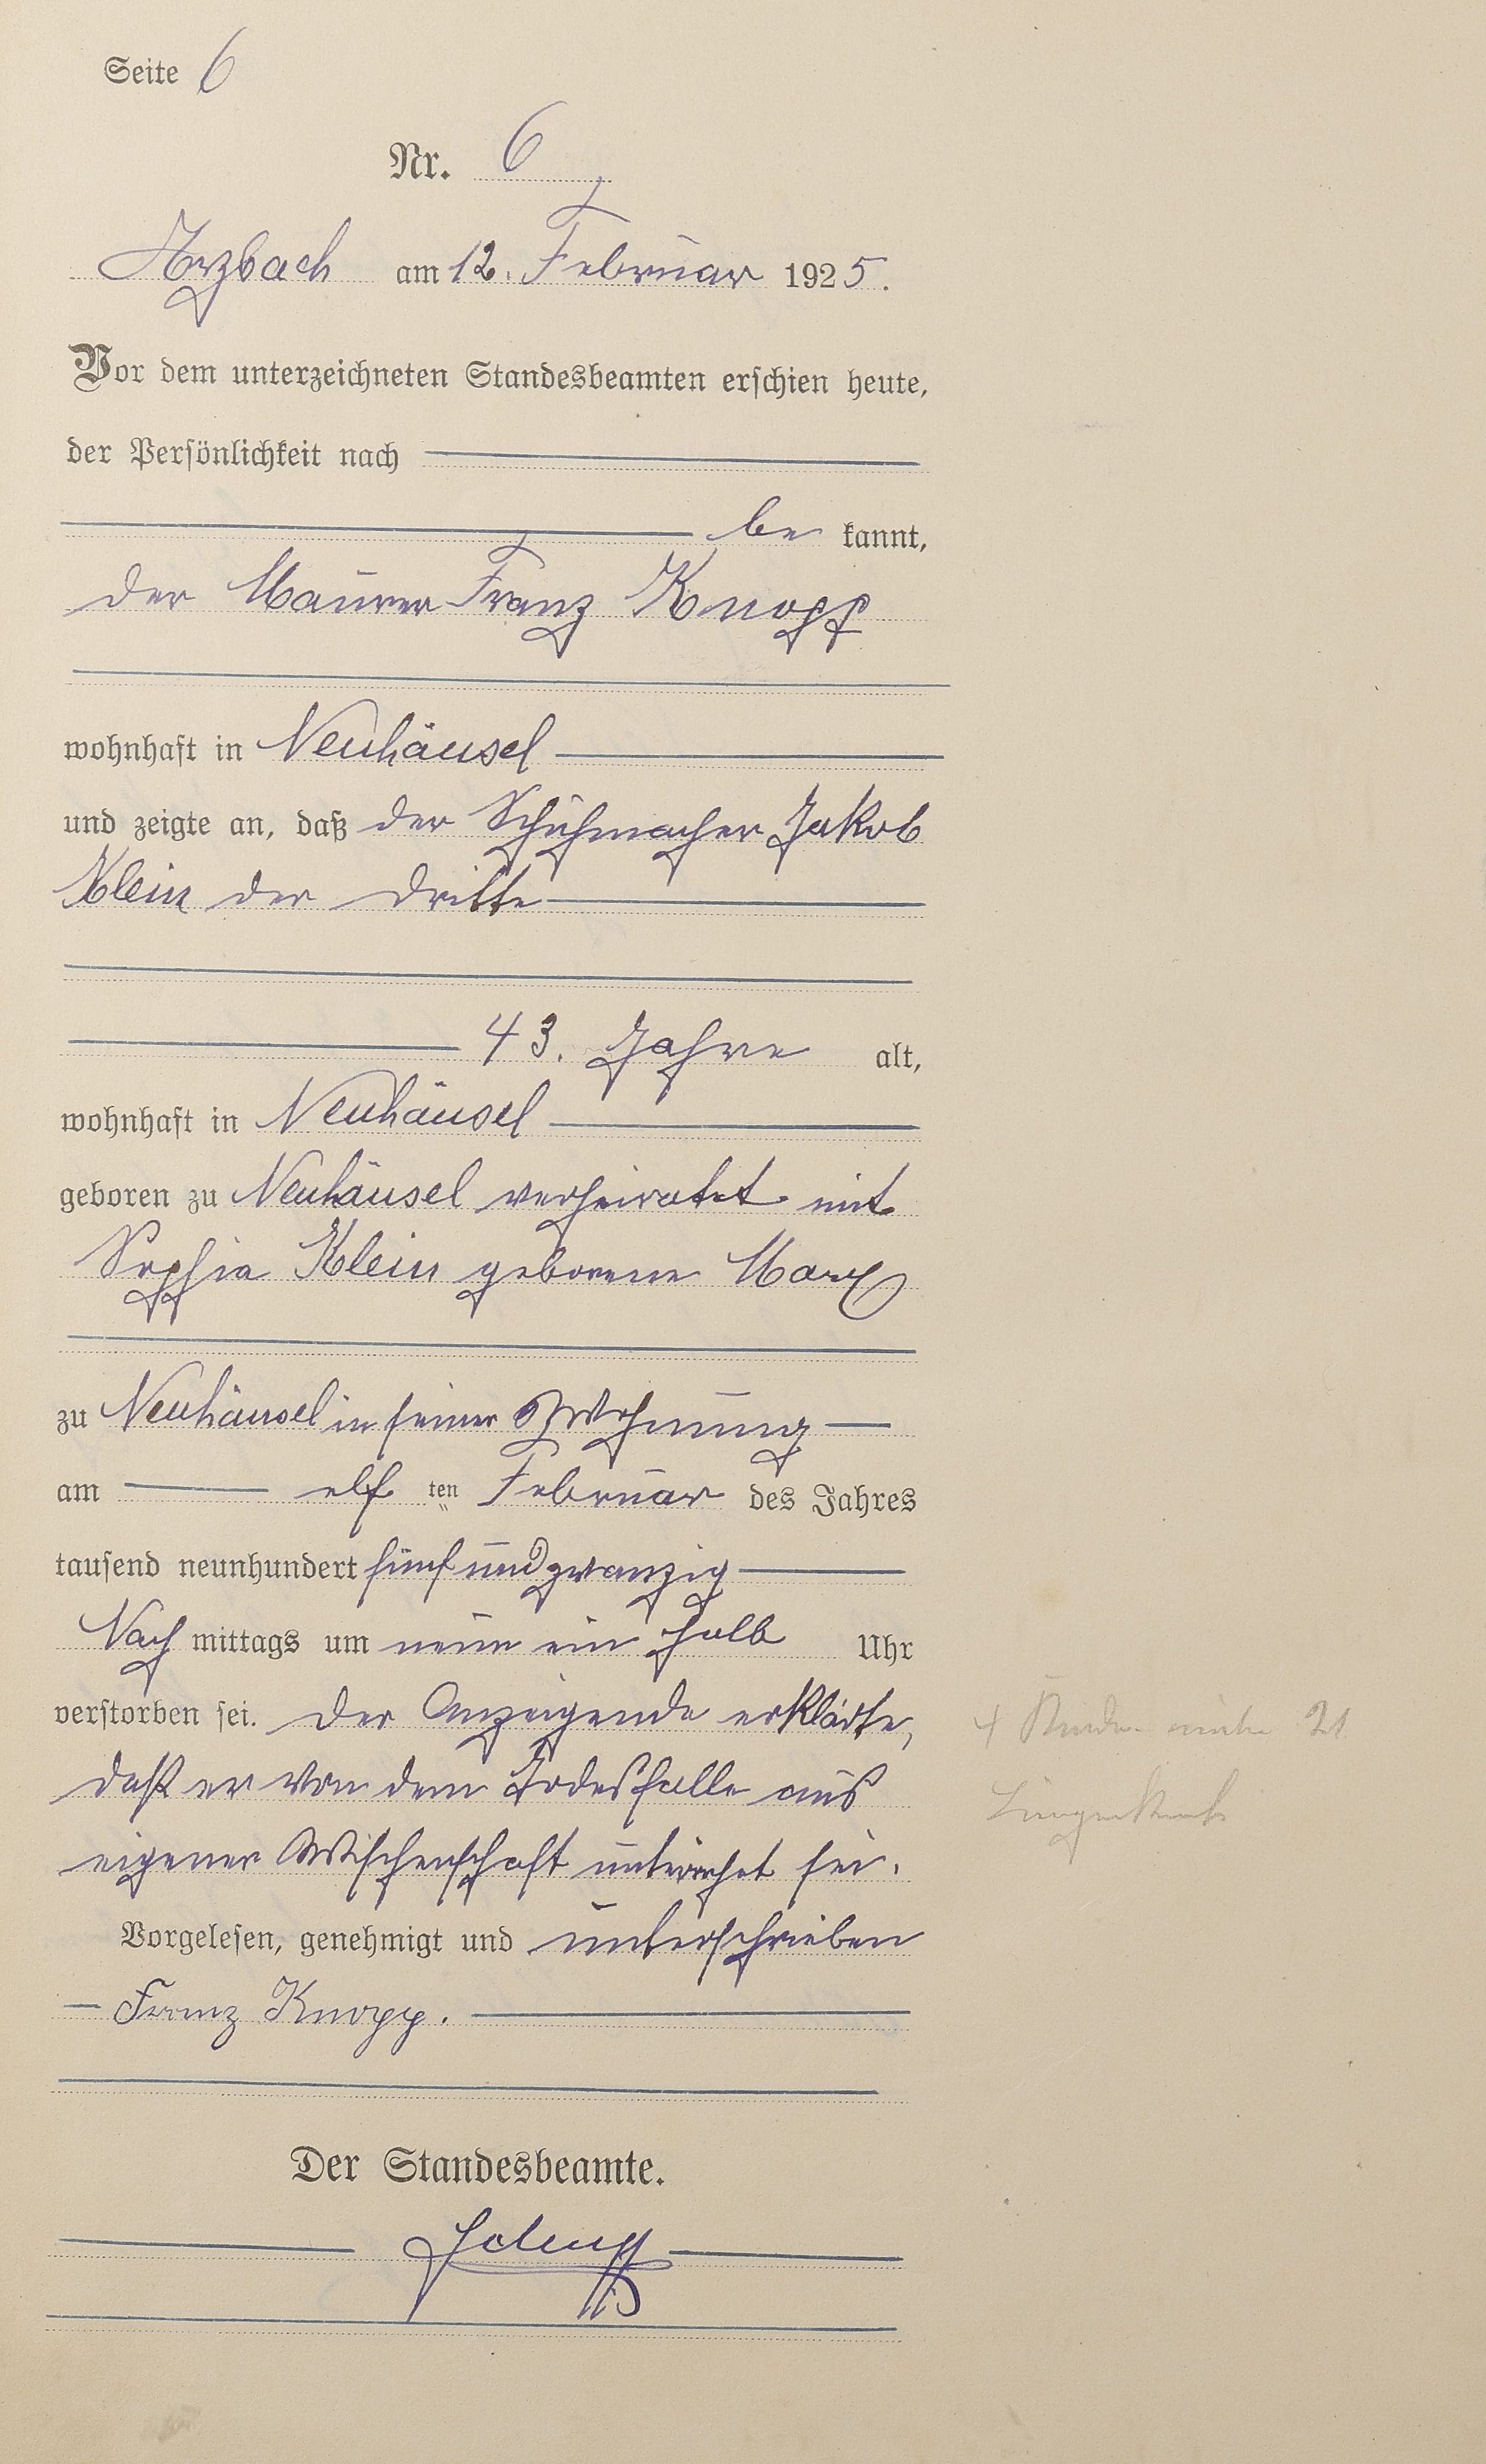 Seite 6
Nr. 6
Arzbach am 12. Februar 1925.
Vor dem unterzeichneten Standesbeamten erschien heute,
der Persönlichkeit nach
be kannt,
der Maurer Franz Knopp
wohnhaft in Neuhäusel
und zeigte an, daß der Schuhmacher Jakob
Klein der dritte
43. Jahre alt,
wohnhaft in Neuhäusel
geboren zu Neuhäusel verheiratet mit
Sophia Klein geborene Marx
zu Neuhäusel in seiner Wohnung
am elf ten Februar des Jahres
tausend neunhundert fünf und zwanzig
Nach mittags um neun ein halb Uhr
verstorben sei. Der Anzeigende erklärte,
daß er von dem Todesfalle aus
eigener Wissenschaft unterrichtet sei.
Vorgelesen, genehmigt und unterschrieben
Franz Knopp.
Der Standesbeamte.